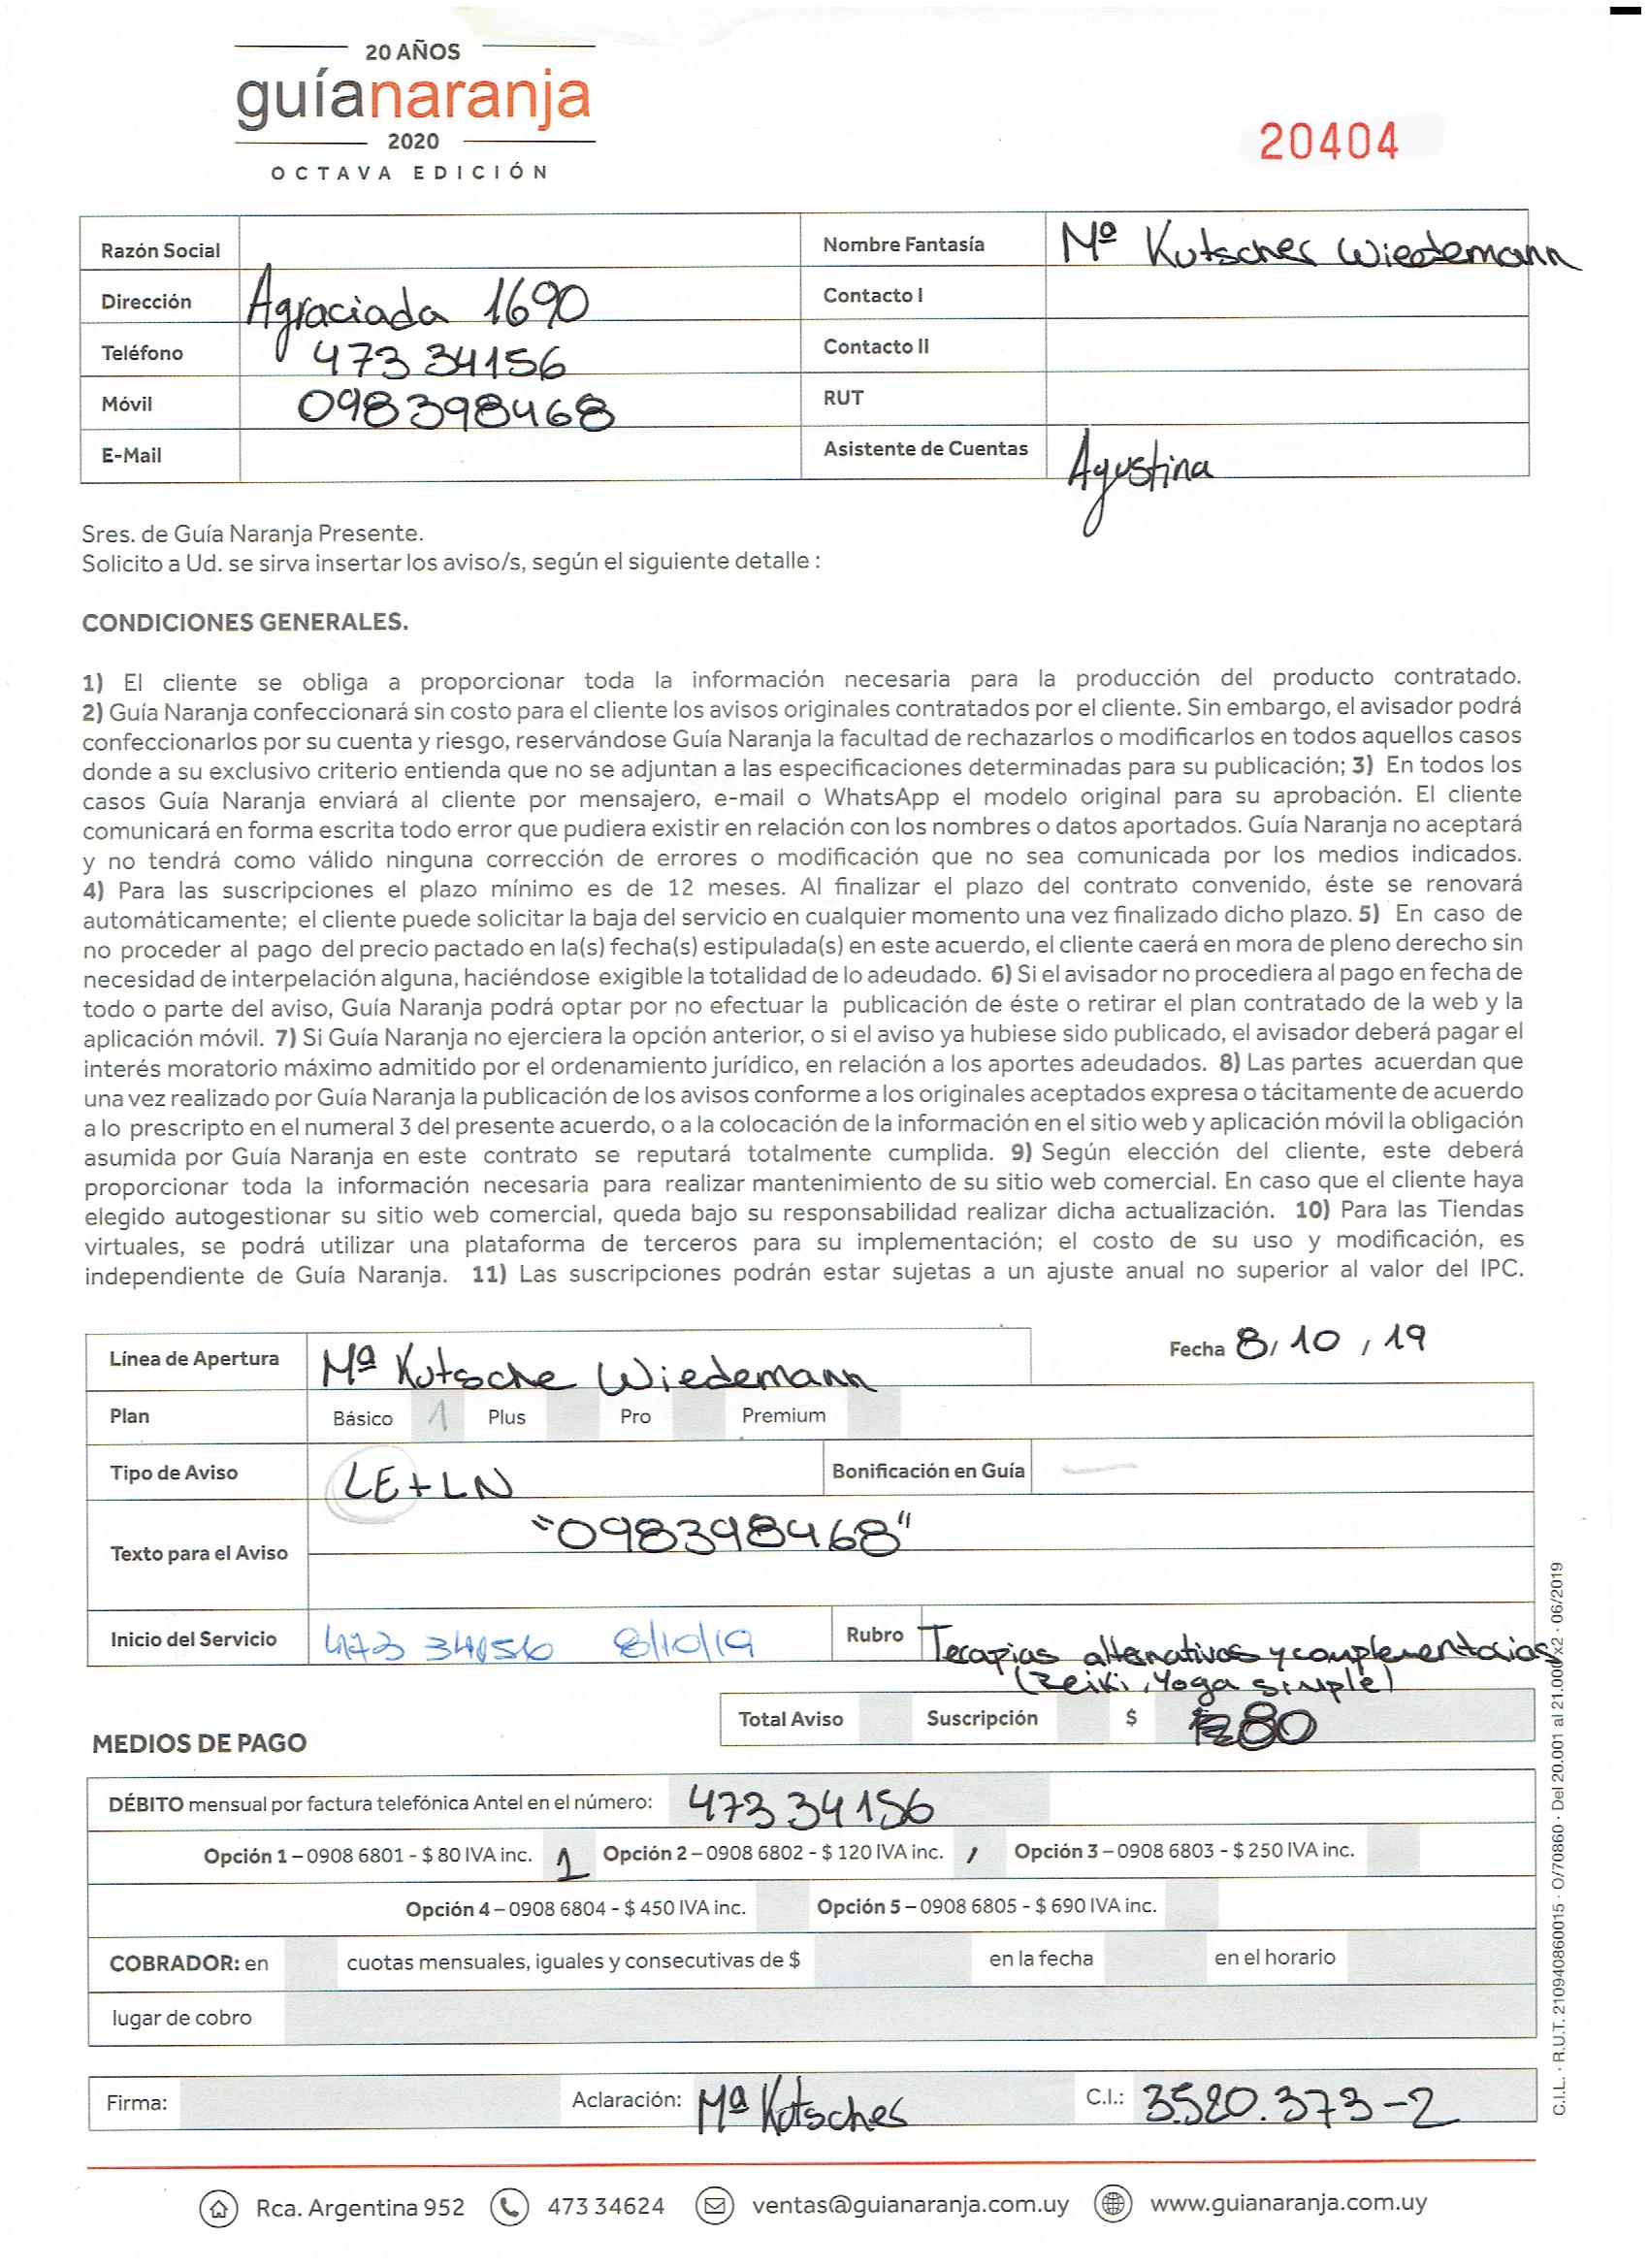 20 AÑOS
guíanaranja
2020
OCTAVA EDICIÓN
20404
Razón Social
Nombre Fantasía Mª Kutscher Wiedemann
Dirección Agraciada 1690
Contacto I
Teléfono 473 34156
Contacto II
Móvil 098398468
RUT
E-Mail
Asistente de Cuentas Agustina
Sres. de Guía Naranja Presente.
Solicito a Ud. se sirva insertar los aviso/s, según el siguiente detalle :
CONDICIONES GENERALES.
1) El cliente se obliga a proporcionar toda la información necesaria para la producción del producto contratado.
2) Guía Naranja confeccionará sin costo para el cliente los avisos originales contratados por el cliente. Sin embargo, el avisador podrá
confeccionarlos por su cuenta y riesgo, reservándose Guía Naranja la facultad de rechazarlos o modificarlos en todos aquellos casos
donde a su exclusivo criterio entienda que no se adjuntan a las especificaciones determinadas para su publicación; 3) En todos los
casos Guía Naranja enviará al cliente por mensajero, e-mail o WhatsApp el modelo original para su aprobación. El cliente
comunicará en forma escrita todo error que pudiera existir en relación con los nombres o datos aportados. Guía Naranja no aceptará
y no tendrá como válido ninguna corrección de errores o modificación que no sea comunicada por los medios indicados.
4) Para las suscripciones el plazo mínimo es de 12 meses. Al finalizar el plazo del contrato convenido, éste se renovará
automáticamente; el cliente puede solicitar la baja del servicio en cualquier momento una vez finalizado dicho plazo. 5) En caso de
no proceder al pago del precio pactado en la(s) fecha(s) estipulada(s) en este acuerdo, el cliente caerá en mora de pleno derecho sin
necesidad de interpelación alguna, haciéndose exigible la totalidad de lo adeudado. 6) Si el avisador no procediera al pago en fecha de
todo o parte del aviso, Guía Naranja podrá optar por no efectuar la publicación de éste o retirar el plan contratado de la web y la
aplicación móvil. 7) Si Guía Naranja no ejerciera la opción anterior, o si el aviso ya hubiese sido publicado, el avisador deberá pagar el
interés moratorio máximo admitido por el ordenamiento jurídico, en relación a los aportes adeudados. 8) Las partes acuerdan que
una vez realizado por Guía Naranja la publicación de los avisos conforme a los originales aceptados expresa o tácitamente de acuerdo
a lo prescripto en el numeral 3 del presente acuerdo, o a la colocación de la información en el sitio web y aplicación móvil la obligación
asumida por Guía Naranja en este contrato se reputará totalmente cumplida. 9) Según elección del cliente, este deberá
proporcionar toda la información necesaria para realizar mantenimiento de su sitio web comercial. En caso que el cliente haya
elegido autogestionar su sitio web comercial, queda bajo su responsabilidad realizar dicha actualización. 10) Para las Tiendas
virtuales, se podrá utilizar una plataforma de terceros para su implementación; el costo de su uso y modificación, es
independiente de Guía Naranja. 11) Las suscripciones podrán estar sujetas a un ajuste anual no superior al valor del IPC.
Línea de Apertura Mª Kutsche Wiedemann
Fecha 8/ 10 / 19
Plan Básico 1 Plus Pro Premium
Tipo de Aviso LE+LN Bonificación en Guía —
Texto para el Aviso "098398468"
Inicio del Servicio 473 34156 8/10/19 Rubro Terapias alternativas y complementarias
(Reiki, Yoga simple)
Total Aviso Suscripción $ 80
MEDIOS DE PAGO
DÉBITO mensual por factura telefónica Antel en el número: 473 34156
Opción 1 – 0908 6801 - $ 80 IVA inc. 1 Opción 2 – 0908 6802 - $ 120 IVA inc. Opción 3 – 0908 6803 - $ 250 IVA inc.
Opción 4 – 0908 6804 - $ 450 IVA inc. Opción 5 – 0908 6805 - $ 690 IVA inc.
COBRADOR: en cuotas mensuales, iguales y consecutivas de $ en la fecha en el horario
lugar de cobro
Firma: Aclaración: Mª Kutscher C.I.: 3.520.373-2
Rca. Argentina 952 473 34624 ventas@guianaranja.com.uy www.guianaranja.com.uy
C.I.L. · R.U.T. 210940860015 · O/70860 · Del 20.001 al 21.000 x2 · 06/2019